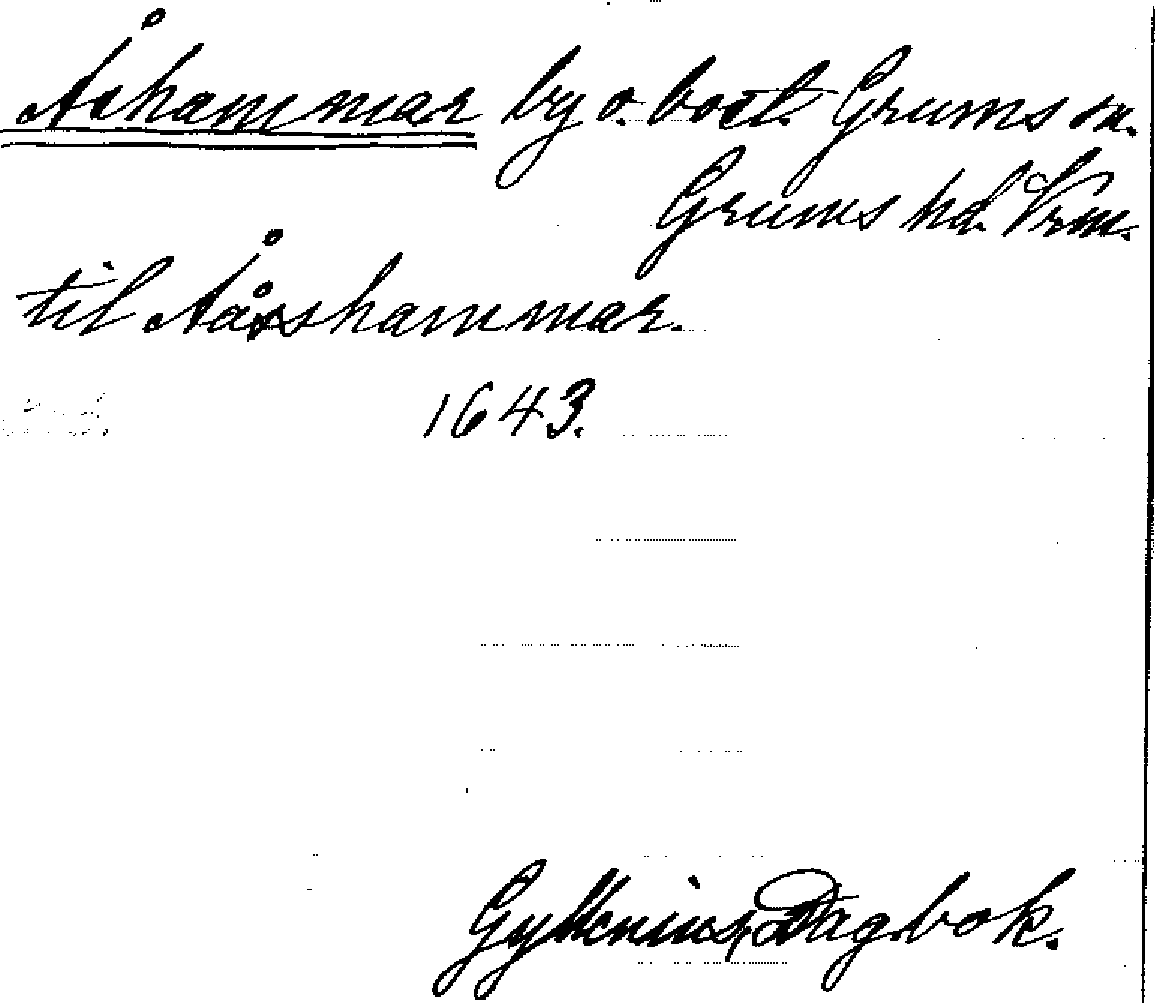 Åshammar by o. bost. Grums sn.
Grums hd. Vrm.
til Aårshammar.
1643.
Gyllenius, Dagbok.